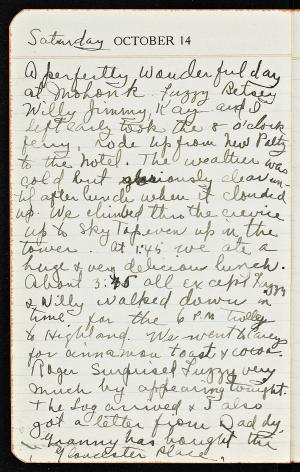 Saturday OCTOBER 14
A perfectly wonderful day
at Mohonk. Fuzzy Betsey
Willy, Jimmy, Kay and I
left early took the 8 o'clock
ferry, rode up from New Paltz
to the hotel. The weather was
cold but gloriously clear un-
til after lunch when it clouded
up. We climbed thru the crevice
up to Sky Top even up in the
tower. at 1:45 we ate a
huge & very delicious lunch.
About 3:45 all except Fuzzy
& Willy walked down in
time for the 6 P.M. trolley
to Highland. We went to
for cinnamon toast & cocoa.
Roger surprised Fuzzy very
much by appearing tonight.
The Log arrived & I also
got a letter from Daddy.
Granny has bought the
Gloucester Place.